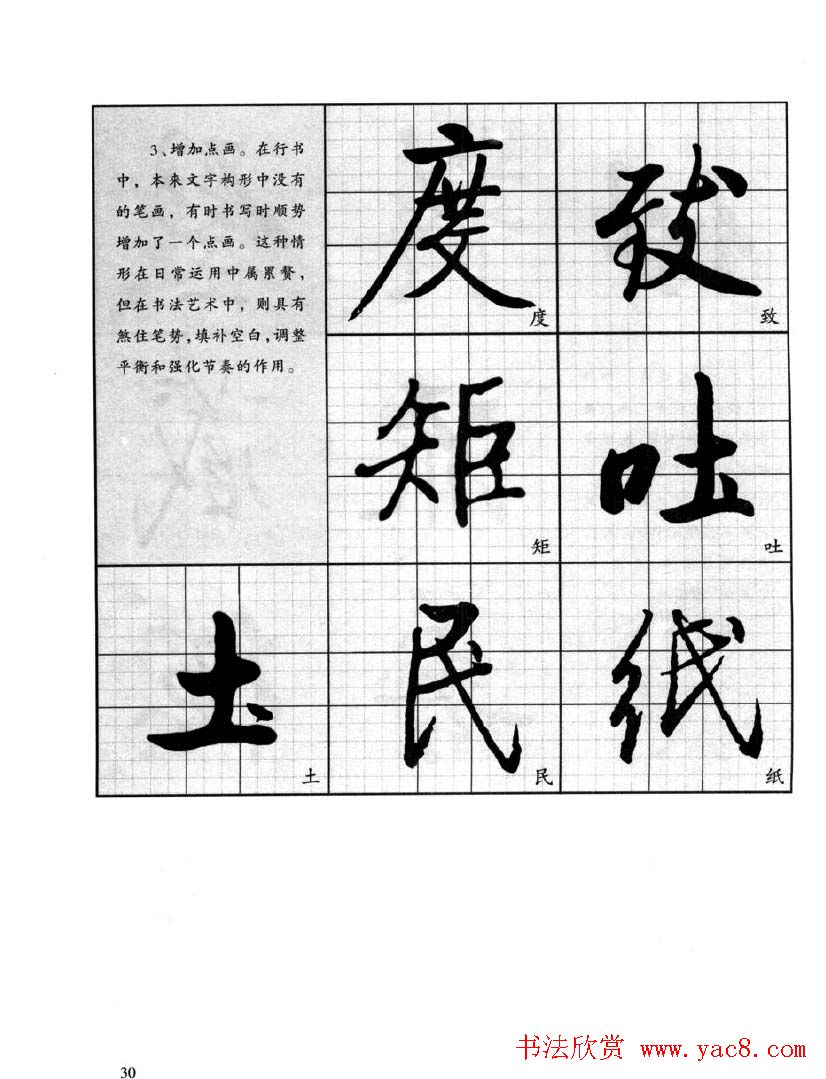 3、增加点画。在行书
中，本来文字构形中没有
的笔画，有时书写时顺势
增加了一个点画。这种情
形在日常运用中属累赘，
但在书法艺术中，则具有
煞住笔势，填补空白，调整
平衡和强化节奏的作用。
度
致
度
致
矩
吐
矩
吐
土
民
纸
土
民
纸
30
书法欣赏 www.yac8.com